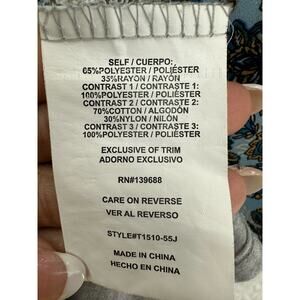 SELF / CUERPO:
65%POLYESTER / POLIÉSTER
33%RAYON / RAYÓN
CONTRAST 1 / CONTRASTE 1:
100%POLYESTER / POLIÉSTER
CONTRAST 2 / CONTRASTE 2:
70%COTTON / ALGODÓN
30%NYLON / NILÓN
CONTRAST 3 / CONTRASTE 3:
100%POLYESTER / POLIÉSTER
EXCLUSIVE OF TRIM
ADORNO EXCLUSIVO
RN#139688
CARE ON REVERSE
VER AL REVERSO
STYLE#T1510-55J
MADE IN CHINA
HECHO EN CHINA